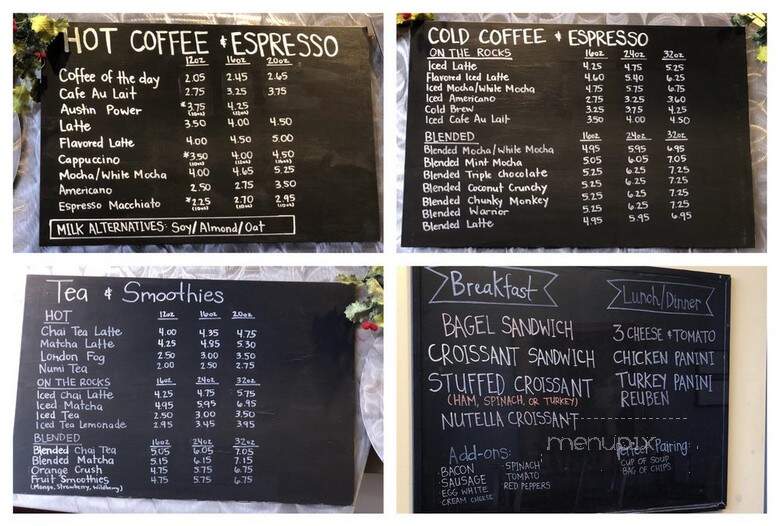 HOT COFFEE & ESPRESSO
12oz 16oz 20oz
Coffee of the day 2.05 2.45 2.65
Cafe Au Lait 2.75 3.25 3.75
Austin Power *3.75 4.25
(10oz) (12oz)
Latte 3.50 4.00 4.50
Flavored Latte 4.00 4.50 5.00
Cappuccino *3.50 4.00 4.50
Mocha/White Mocha 4.00 4.65 5.25
Americano 2.50 2.75 3.50
Espresso Macchiato *2.25 2.70 2.95
MILK ALTERNATIVES: Soy/Almond/Oat
COLD COFFEE & ESPRESSO
ON THE ROCKS 16oz 24oz 32oz
Iced Latte 4.25 4.75 5.25
Flavored Iced Latte 4.60 5.40 6.25
Iced Mocha/White Mocha 4.75 5.75 6.75
Iced Americano 2.75 3.25 3.60
Cold Brew 3.25 3.75 4.25
Iced Cafe Au Lait 3.50 4.00 4.50
BLENDED 16oz 24oz 32oz
Blended Mocha/White Mocha 4.95 5.95 6.95
Blended Mint Mocha 5.05 6.05 7.05
Blended Triple Chocolate 5.25 6.25 7.25
Blended Coconut Crunchy 5.25 6.25 7.25
Blended Chunky Monkey 5.25 6.25 7.25
Blended Warrior 5.25 6.25 7.25
Blended Latte 4.95 5.95 6.95
Tea & Smoothies
HOT 12oz 16oz 20oz
Chai Tea Latte 4.00 4.35 4.75
Matcha Latte 4.25 4.95 5.30
London Fog 2.50 3.00 3.50
Numi Tea 2.00 2.50 2.75
ON THE ROCKS 16oz 24oz 32oz
Iced Chai Latte 4.25 4.75 5.75
Iced Matcha 4.95 5.95 6.95
Iced Tea 2.50 3.00 3.50
Iced Tea Lemonade 2.95 3.45 3.95
BLENDED 16oz 24oz 32oz
Blended Chai Tea 5.05 6.05 7.05
Blended Matcha 5.15 6.15 7.15
Orange Crush 4.75 5.75 6.75
Fruit Smoothies 4.75 5.75 6.75
(Mango, Strawberry, Wildberry)
Breakfast
BAGEL SANDWICH
CROISSANT SANDWICH
STUFFED CROISSANT
(HAM, SPINACH, OR TURKEY)
NUTELLA CROISSANT
Add-ons:
· BACON
· SAUSAGE
· EGG WHITE
· CREAM CHEESE
· SPINACH
TOMATO
RED PEPPERS
Lunch/Dinner
3 CHEESE & TOMATO
CHICKEN PANINI
TURKEY PANINI
REUBEN
menupix
Perfect Pairing:
CUP OF SOUP
BAG OF CHIPS